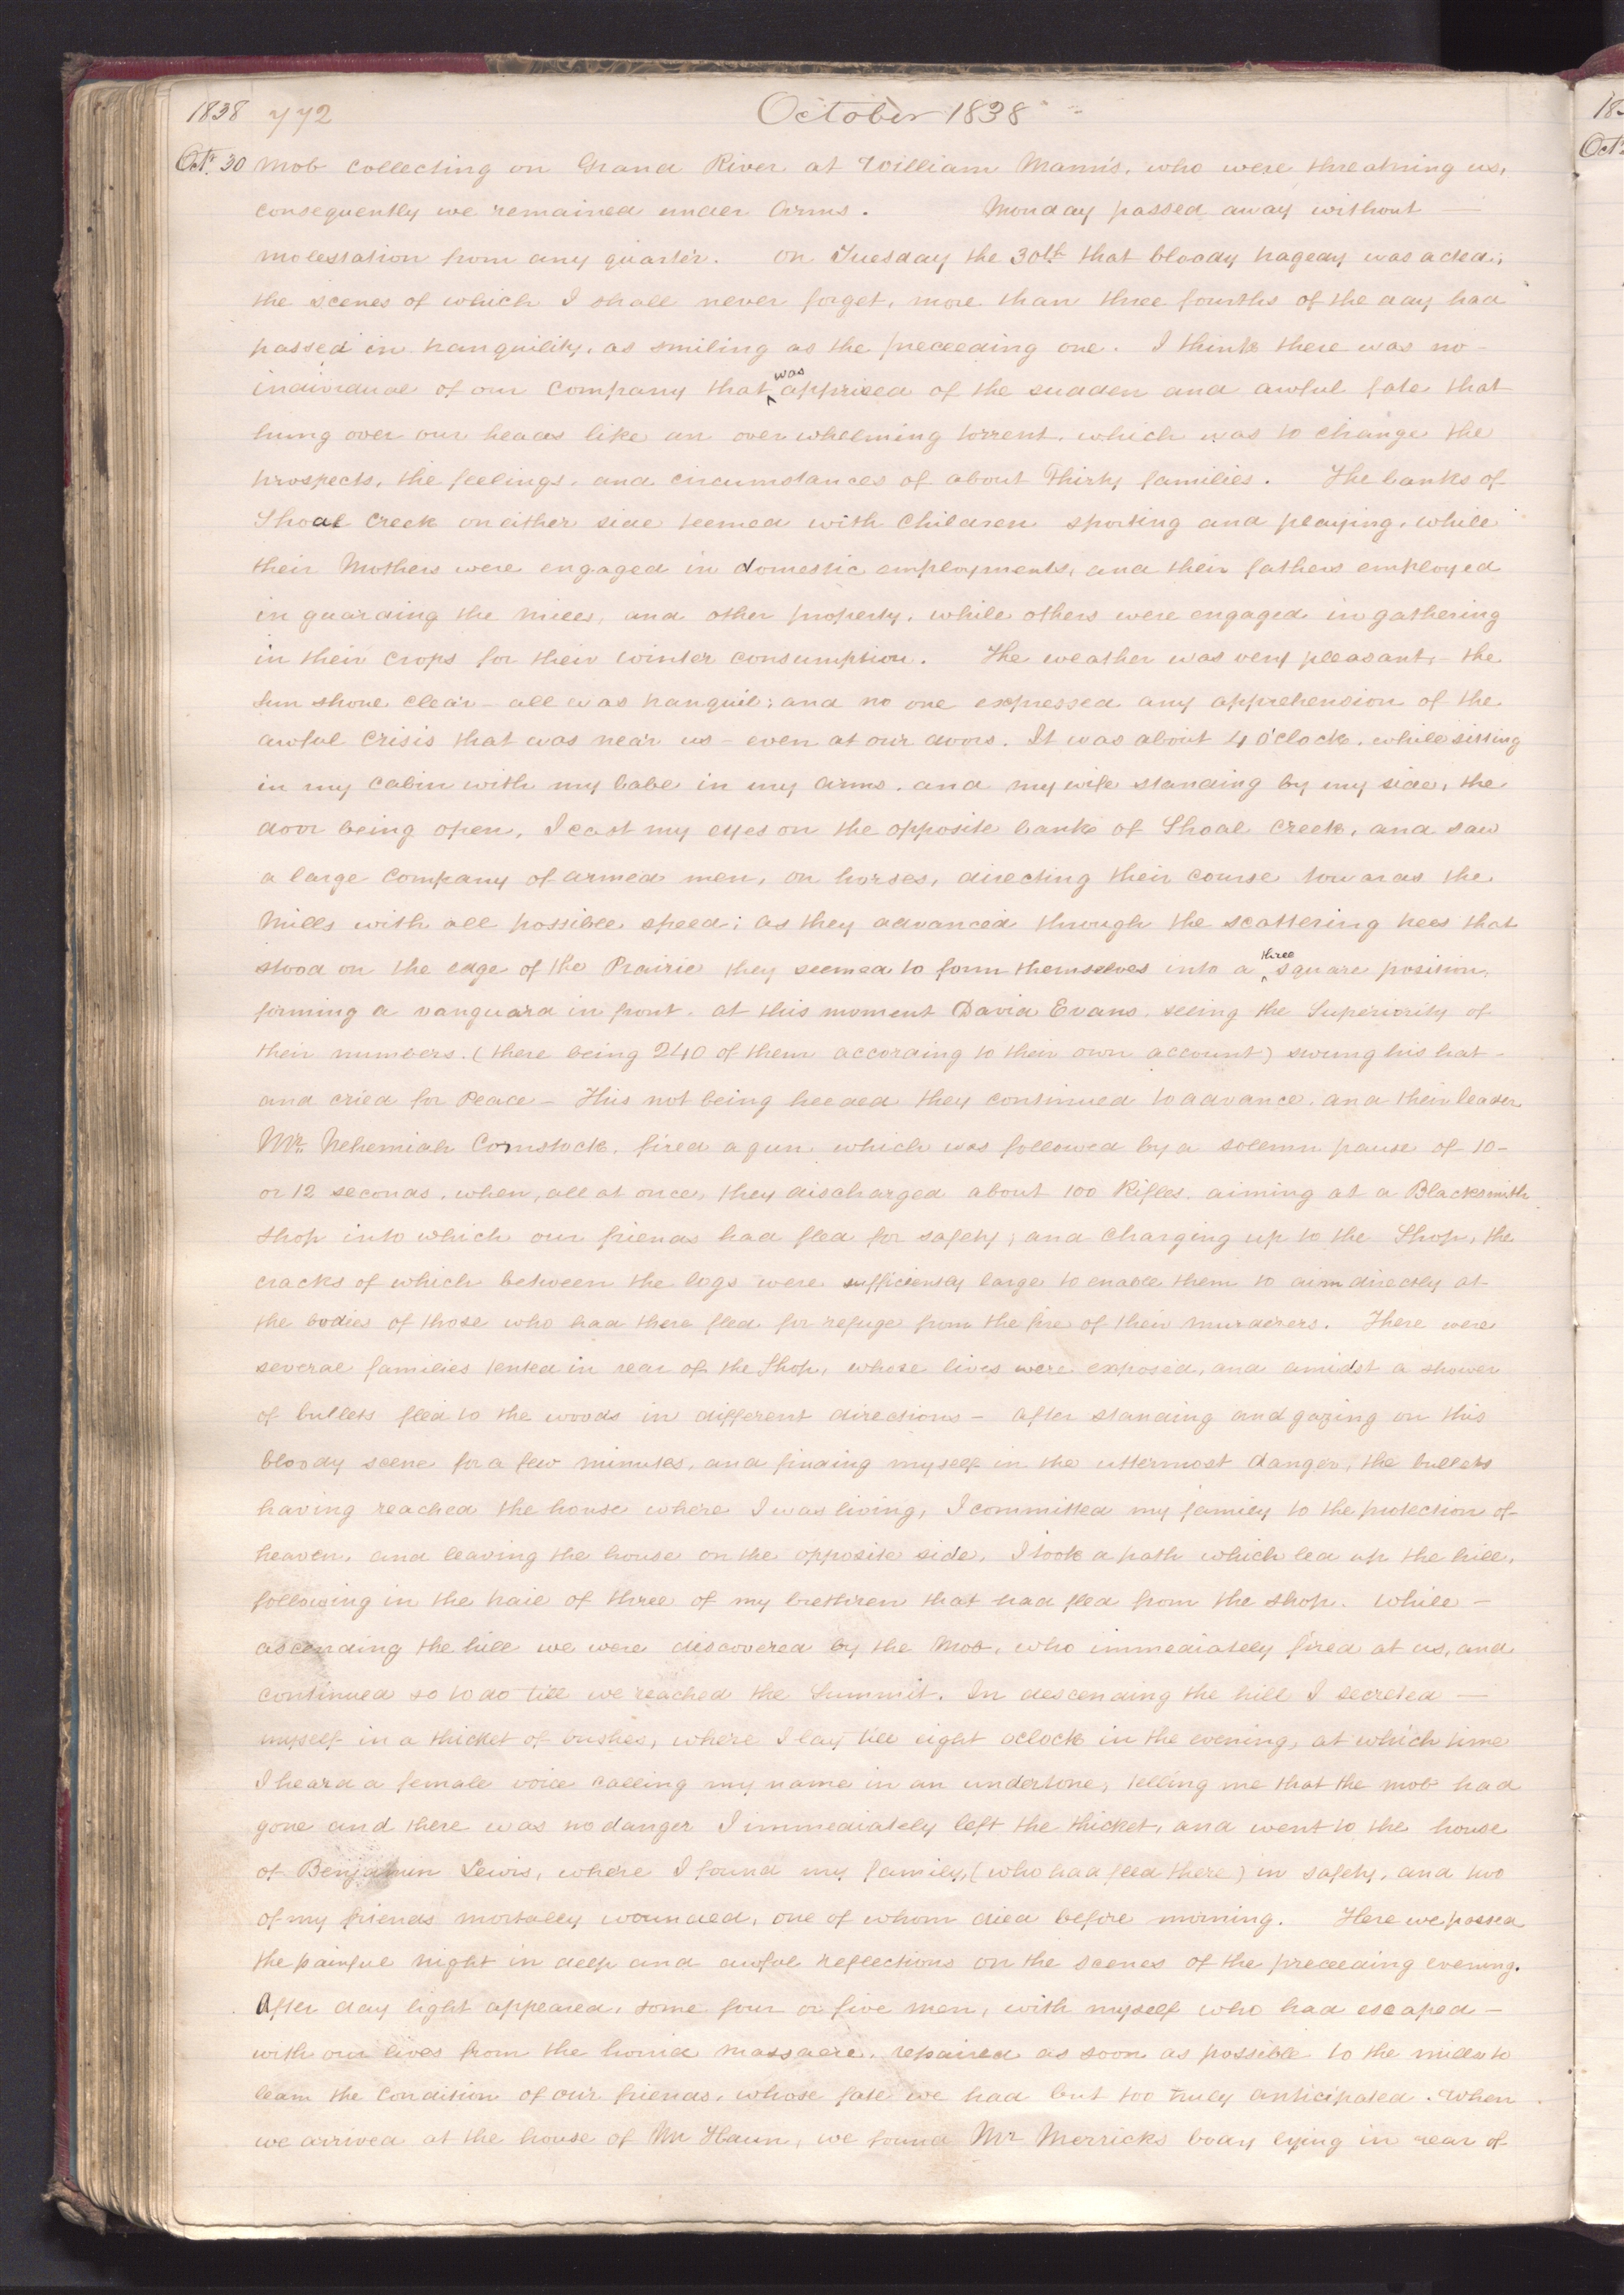 1838 772 October 1838
Oct. 30 Mob collecting on Grand River at William Mann's, who were threatning us,
consequently we remained under arms. Monday passed away without —
molestation from any quarter. on Tuesday the 30th that bloody tragedy was acted;
the scenes of which I shall never forget, more than three fourths of the day had
passed in tranquility, as smiling as the preceeding one. I think there was no -
individual of our company that was apprised of the sudden and awful fate that
hung over our heads like an over whelming torrent, which was to change the
prospects, the feelings, and circumstances of about Thirty families. The banks of
Shoal Creek on either side teemed with children sporting and playing, while
their Mothers were engaged in domestic employments, and their fathers employed
in guarding the mills, and other property, while others were engaged in gathering
in their crops for their winter consumption. The weather was very pleasant, - the
sun shone clear - all was tranquil; and no one expressed any apprehension of the
awful crisis that was near us - even at our doors. It was about 4 o'clock, while sitting
in my cabin with my babe in my arms, and my wife standing by my side, the
door being open, I cast my eyes on the opposite bank of Shoal Creek, and saw
a large company of armed men, on horses, directing their course towards the
Mills with all possible speed; as they advanced through the scattering trees that
stood on the edge of the Prairie they seemed to form themselves into a three square position,
forming a vanguard in front. at this moment David Evans, seeing the Superiority of
their numbers. (there being 240 of them according to their own account) swung his hat -
and cried for Peace - This not being heeded they continued to advance, and their leader
Mr. Nehemiah Comstock, fired a gun, which was followed by a solemn pause of 10 -
or 12 seconds, when, all at once, they discharged about 100 Rifles, aiming at a Blacksmith
shop into which our friends had fled for safety; and charging up to the Shop, the
cracks of which between the logs were sufficiently large to enable them to aim directly at
the bodies of those who had there fled for refuge from the fire of their murderers. There were
several families tented in rear of the Shop, whose lives were exposed, and amidst a shower
of bullets fled to the woods in different directions - after standing and gazing on this
bloody scene for a few minutes, and finding myself in the uttermost danger, the bullets
having reached the house where I was living, I committed my family to the protection of
heaven, and leaving the house on the opposite side, I took a path which led up the hill,
following in the trail of three of my brethren that had fled from the shop. While -
ascending the hill we were discovered by the Mob, who immediately fired at us, and
continued so to do till we reached the Summit. In descending the hill I secreted —
myself in a thicket of bushes, where I lay till eight o'clock in the evening, at which time
I heard a female voice calling my name in an undertone, telling me that the mob had
gone and there was no danger I immediately left the thicket, and went to the house
of Benjamin Lewis, where I found my family, (who had fled there) in safety, and two
of my friends mortally wounded, one of whom died before morning. Here we passed
the painful night in deep and awful reflections on the scenes of the preceeding evening.
After day light appeared, some four or five men, with myself who had escaped -
with our lives from the horrid massacre, repaired as soon as possible to the mills to
learn the condition of our friends, whose fate we had but too truly anticipated. When
we arrived at the house of Mr Haun, we found Mr Merricks body lying in rear of
183
Oct